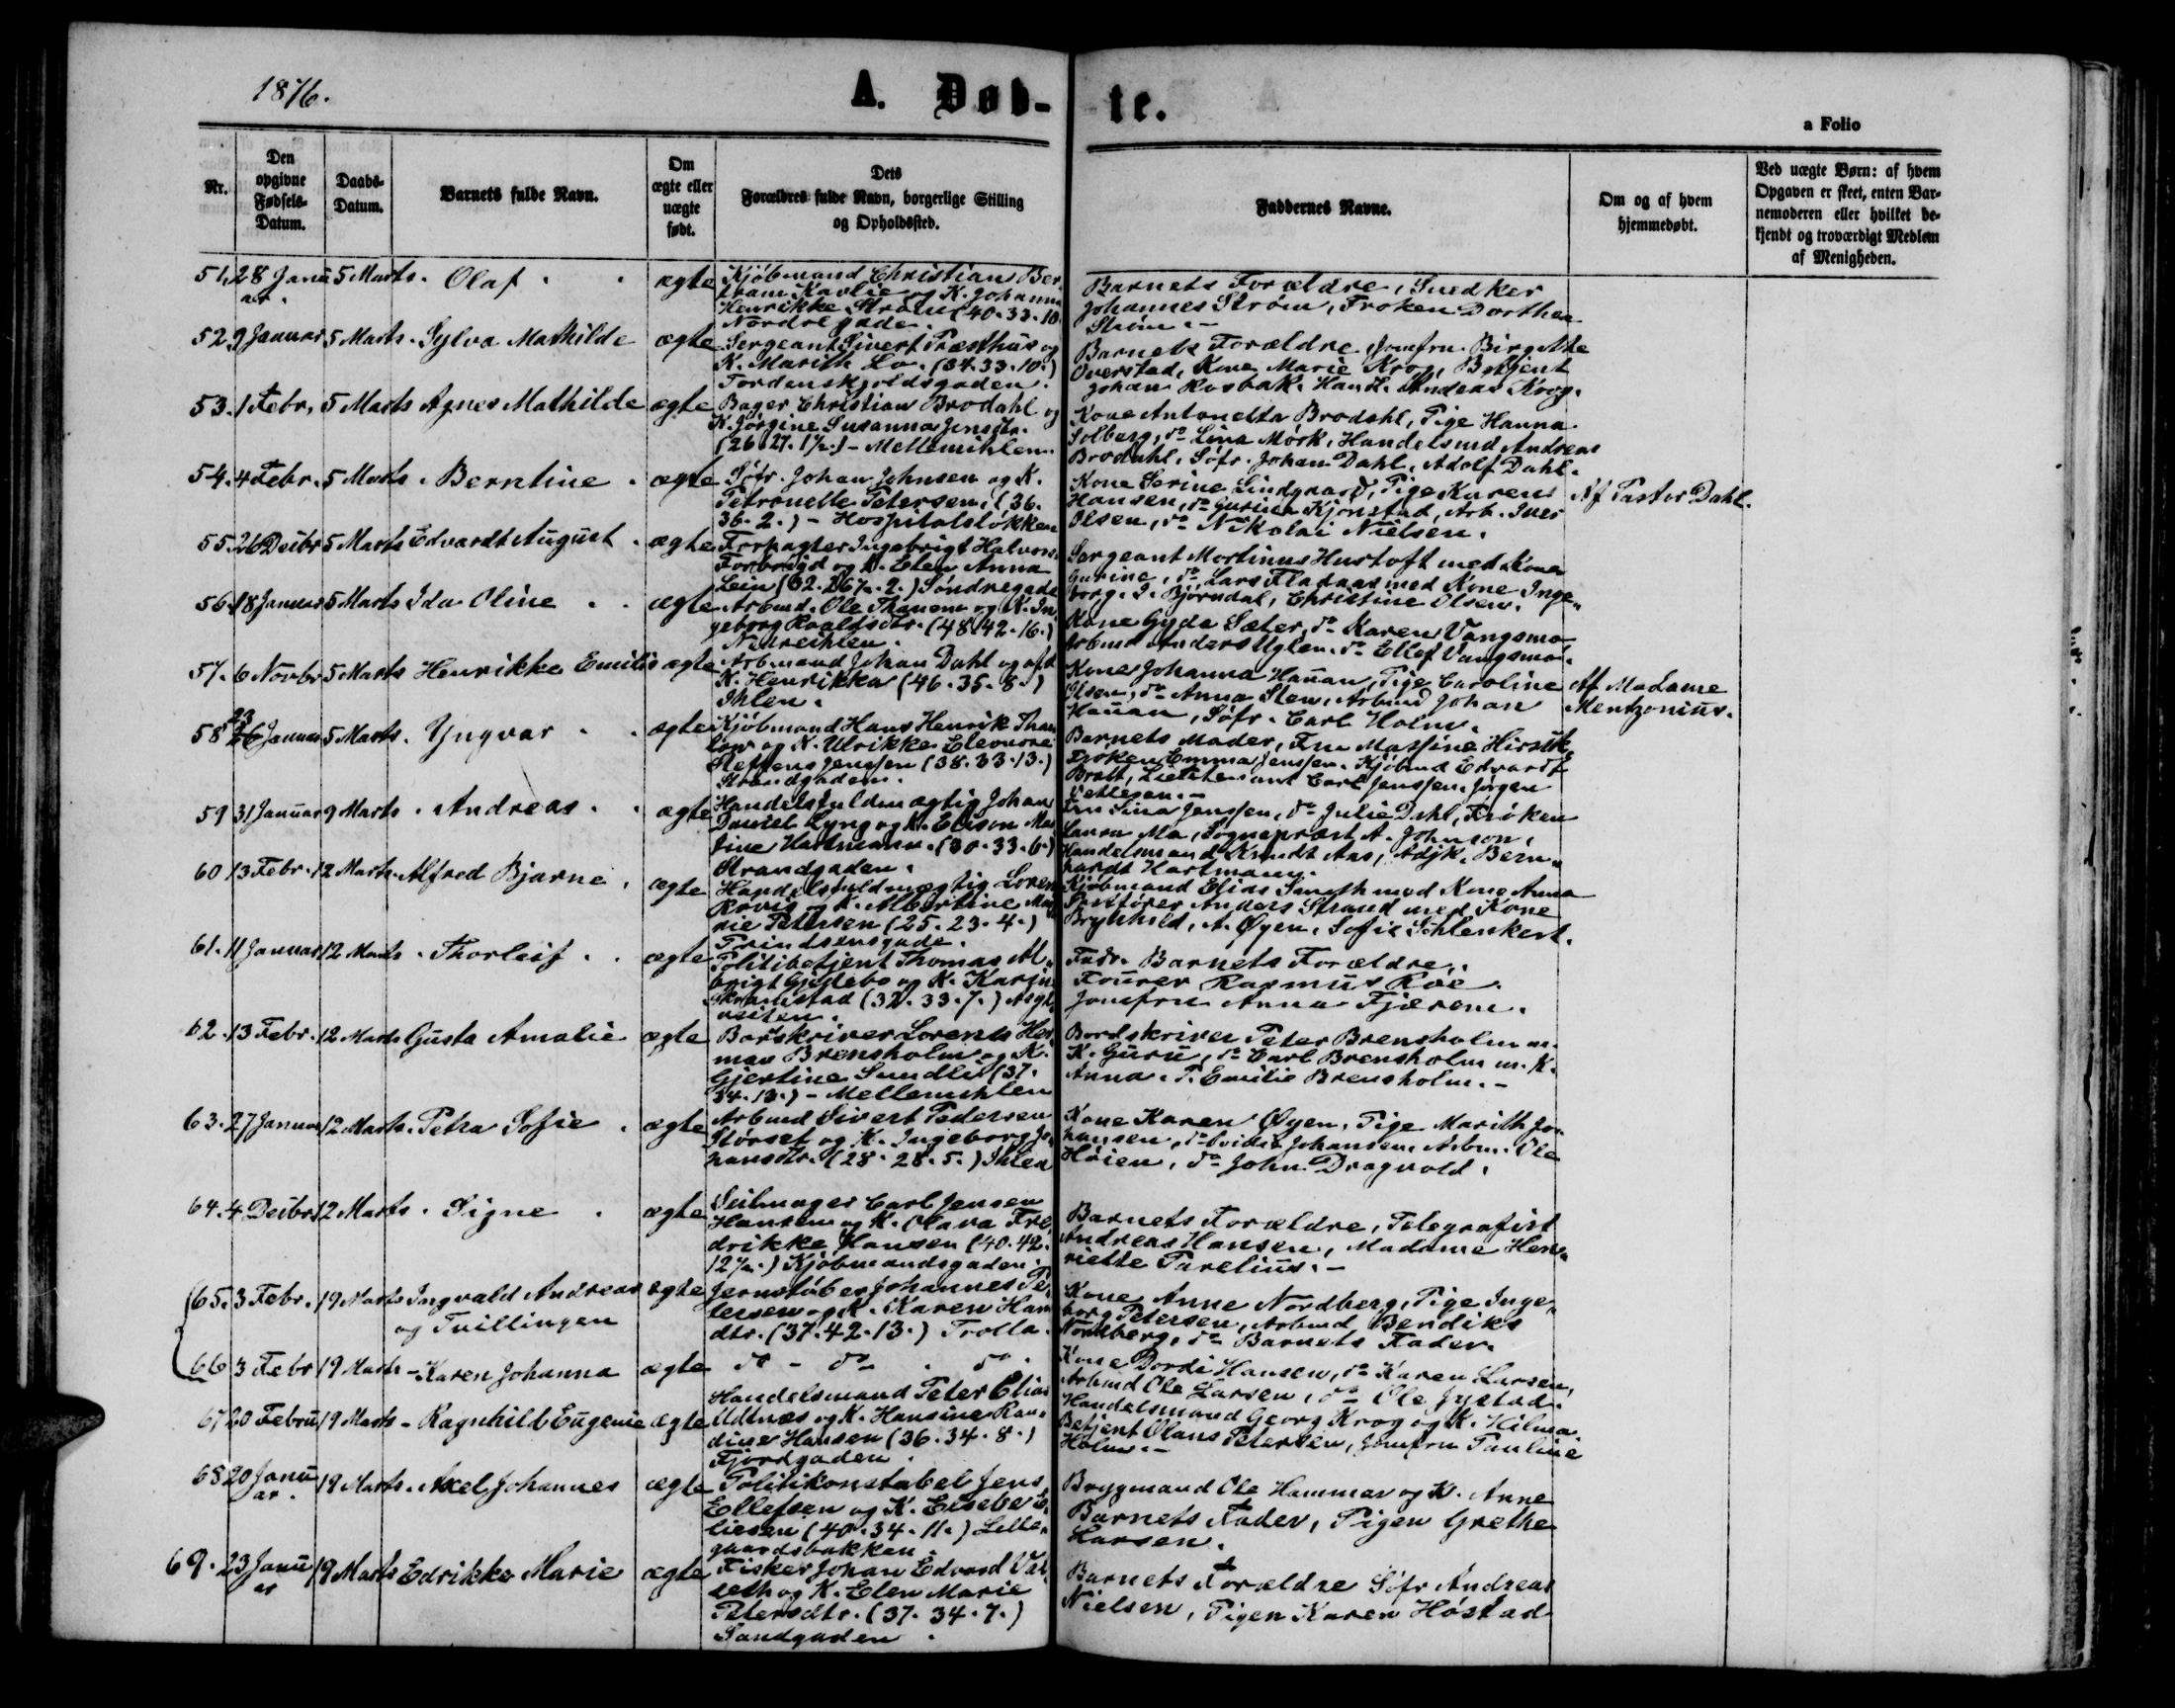 1876.
A. Døb-
te.
a Folio
Nr.
Den opgivne Fødsels-Datum.
Daabs-Datum.
Barnets fulde Navn.
Om ægte eller uægte født.
Dets Forældres fulde Navn, borgerlige Stilling og Opholdssted.
Faddernes Navne.
Om og af hvem hjemmedøbt.
Ved uægte Børn: af hvem Opgaven er skeet, enten Barnemoderen eller hvilket bekjendt og troværdigt Medlem af Menigheden.
51. 28 Janu 5 Marts. Olaf ægte Kjøbmand Christian Ber
ar.
og K. Johanna
Henrikke Strøm (40.33.10
Nordregade.
Barnets Forældre, Snedker
Johannes Strøm, Frøken Dorthea
Strøm.-
52 9 Januar 5 Marts. Sylva Mathilde ægte Sergeant Sivert Præsthus og
K. Marith Lo. (34.33.10.)
Tordenskjoldsgaden.
Barnets Forældre, Jomfru Birgitte
Overstad, Kone Marie Krog, Betjent
Johan Rosbak. Handl. Andreas Krog.
53. 1 Febr. 5 Marts Agnes Mathilde ægte Bager Christian Brodahl og
K. Jørgine Susanna Jensdtr.
(26.27.1½.) - Mellemihlen.
Kone Antonetta Brodahl, Pige Hanna
Solberg, do Lina Mørk, Handelsmd Andreas
Brodahl, Søfr. Johan Dahl, Adolf Dahl.
54. 4 Febr. 5 Marts. Berntine. ægte Søfr. Johan Johnsen og K.
Petronelle Petersen. (36.
36.2.) - Hospitalsløkken
Kone Serine Lindgaard, Pige Karen
Hansen, do Gurina Kjønstad, Arb. Iver
Olsen, do Nikolai Nielsen.
Af Pastor Dahl.
55. 26 Decbr 5 Marts Edvardt August. ægte Forpagter Ingebrigt Halvors.
og K. Elen Anna
Lein (32. 26½. 2.) Søndregade
Sergeant Martinus Hustoft med Kone
Gurine, do Lars Fladaas med Kone Inge-
borg. I. Bjørndal, Christine Olsen.
56. 18 Januar 5 Marts Ida Oline ægte Arbmd. Ole Thanem og K. In
geborg Roaldsdtr. (48.42.16.)
Nedreihlen.
Kone Gyda Sæter, do Karen Vangsmo
Arbmd Anders Uglen. do Ellef Vangsmo.
57. 6 Novbr 5 Marts Henrikke Emilie ægte Arbmand Johan Dahl og afd
K. Henrikka (46.35.8.)
Ihlen.
Kone Johanna Hauan, Pige Caroline
Olsen, do Anna Sten, Arbmd Johan
Hauan, Søfr. Carl Holm.
Af Madame
Mentzonius.
58 23 26 Januar 5 Marts. Yngvar ægte Kjøbmand Hans Henrik Than
og K. Ulrikke Eleonore
Steffens Jenssen (38.33.13.)
Strandgaden.
Barnets Moder, Fru Massine
Frøken Emma Jenssen. Kjøbmd Edvardt
Bratt, Lieutenant Carl Jenssen. Jørgen
59 31 Januar 9 Marts. Andreas. ægte Handelsfuldmægtig Johan
Daniel Lyng og K. Elison Ma
Hartmann. (30.33.6.)
Strandgaden.
Fru Lina Jenssen, do Julie Dahl, Frøken
Laura Ma, Sognepræst A. Johnson,
Handelsmand Knudt Aas, Adjk. Bern-
hardt Hartmann.
60 13 Febr. 12 Marts. Alfred Bjarne. ægte Handelsfuldmægtig Loren
og K. Albertine Ma
rie Petersen (25.23.4.)
Prindsensgade.
Kjøbmand Elias Smith med Kone Anna
Anders Strand med Kone
Brynhild, A. Øyen, Sofie Schlenkert.
61. 11 Januar 12 Marts. Thorleif. ægte Politibetjent Thomas Al
brigt Gjellebo og K. Karjn
(32.33.7.)
Fadr. Barnets Forældre,
Fourer Rasmus Roe.
Jomfru Anna Fjærem.
62. 13 Febr. 12 Marts Gusta Amalie ægte Bordskriver Lorents Her
man Brensholm og K.
Gjertine Sundli (37.
34.13.) - Mellemihlen
Bordskriver Peter Brensholm m.
K. Guru, do Carl Brensholm m. K.
Anna. P. Emilie Brensholm.-
63. 27 Januar 12 Marts. Petra Sofie. ægte Arbmd Sivert Pedersen
Størset og K. Ingeborg Jo
hansdtr. (28.28.5.) Ihlen
Kone Karen Øyen, Pige Marith Jo-
hansen, Johansen, Arbm. Ole
Høien, do John Dragvold.
64. 4 Decbr 12 Marts. Signe. ægte Seilmager Carl Jensen
Hansen og K. Olava Fre
drikke Hansen (40.42.
12½.) Kjøbmandsgaden.
Barnets Forældre, Telegrafist
Andreas Hansen, Madame Hen-
riette Parelius.-
65. 3 Febr. 19 Marts Ingvald Andreas ægte Jernstøber Johannes Pe
og Tvillingen
tersen og K. Karen Han
dtr. (37.42.13.) Trolla.
Kone Anne Nordberg, Pige Inge-
borg Petersen, Arbmd Bendiks
Nordberg, do Barnets Fader.
66 3 Febr 19 Marts - Karen Johanna ægte do - do . do.
Kone Dordi Hansen, do Karen Larsen,
Arbmd Ole Larsen, do Ole Jystad.
67 20 Febru 19 Marts - Ragnhild Eugenie ægte Handelsmand Peter Elias
Udtnæs og K. Hansine Ran-
dine Hansen (36.34.8.)
Fjordgaden.
Handelsmand Georg Krog og K. Hilma.
Betjent Olaus Petersen, Jomfru Pauline
Holm.-
68 20 Janu 19 Marts. Axel Johannes ægte Politikonstabel Jens
ar.
Ellefsen og K. Elseber E
liesen (40.34.11.) Lille-
gaardsbakken.
Brygmand Ole Hammer og K. Anne
Barnets Fader, Pigen Grethe
Larsen.
69. 23 Janu 19 Marts Edrikke Marie ægte Fisker Johan Edvard Val
ar
seth og K. Elen Marie
Petersdtr. (37.34.7.)
Sandgaden.
Barnets Forældre Søfr Andreas
Nielsen, Pigen Karen Høstad